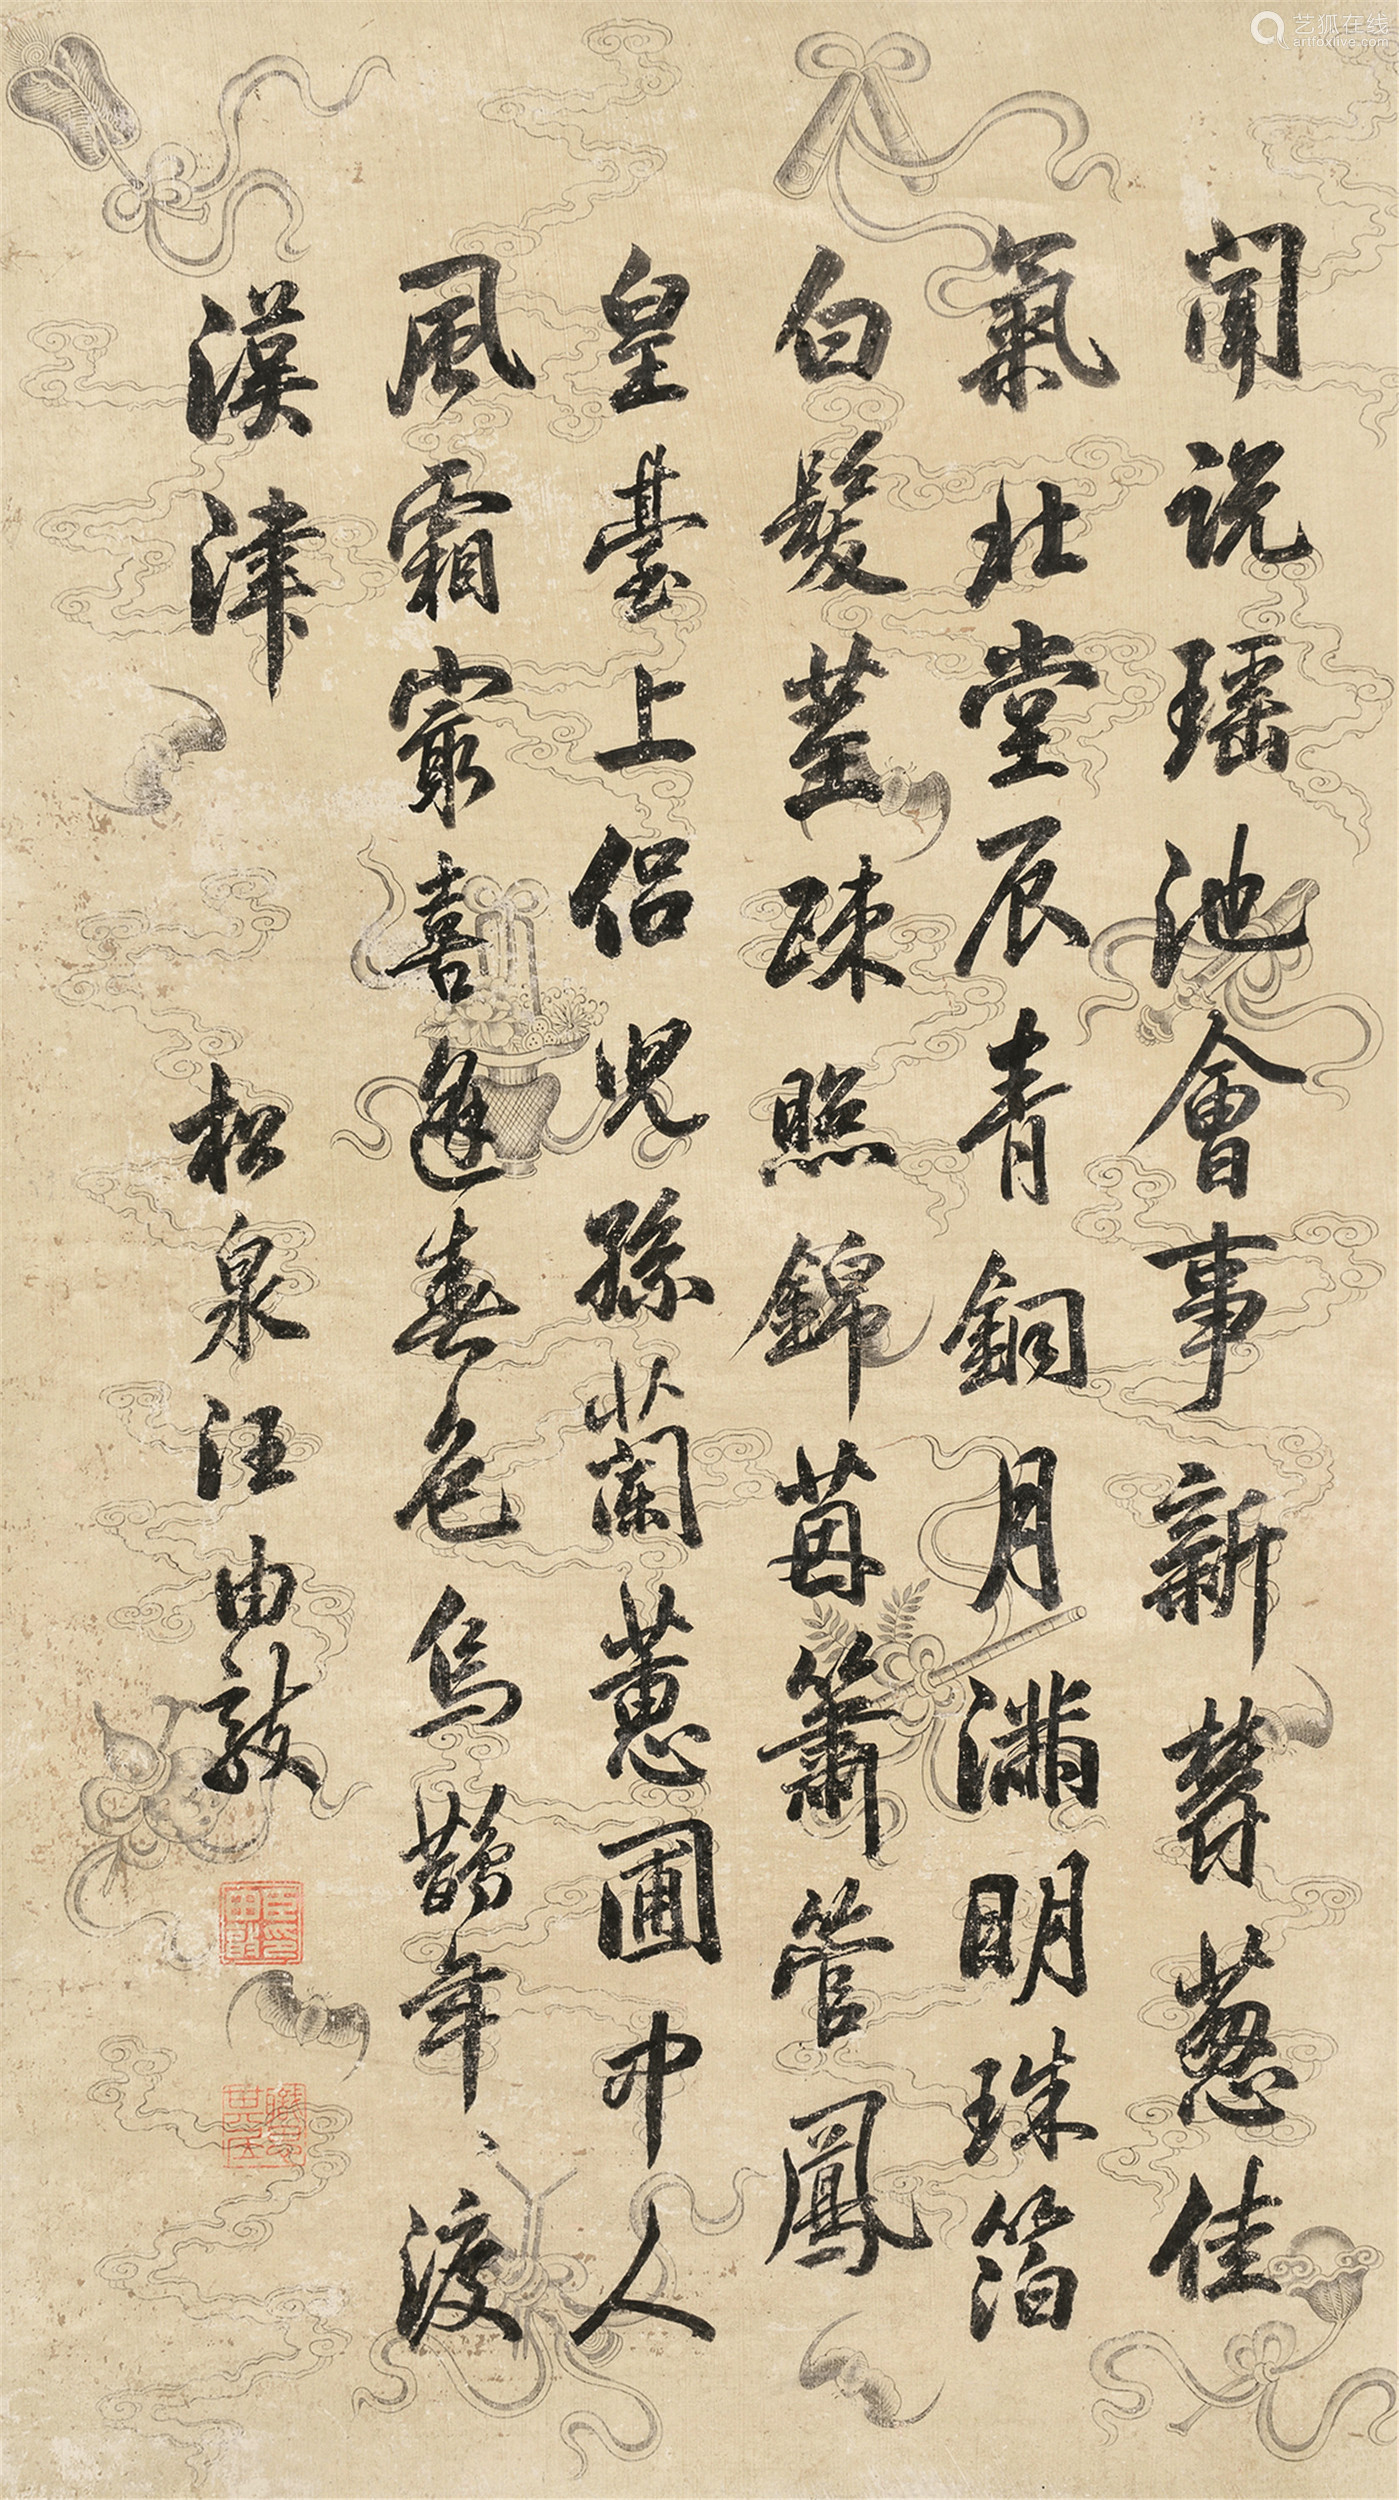 聞說瑶池會事新鬱葱佳
氣北堂辰青銅月滿明珠箔
白髮莖疎照錦茵簫管鳳
皇臺上侣兒孫蘭蕙圃中人
風霜寂喜逢春色烏鵲年、渡
漢津
松泉汪由敦
艺狐在线
artfoxlive.com